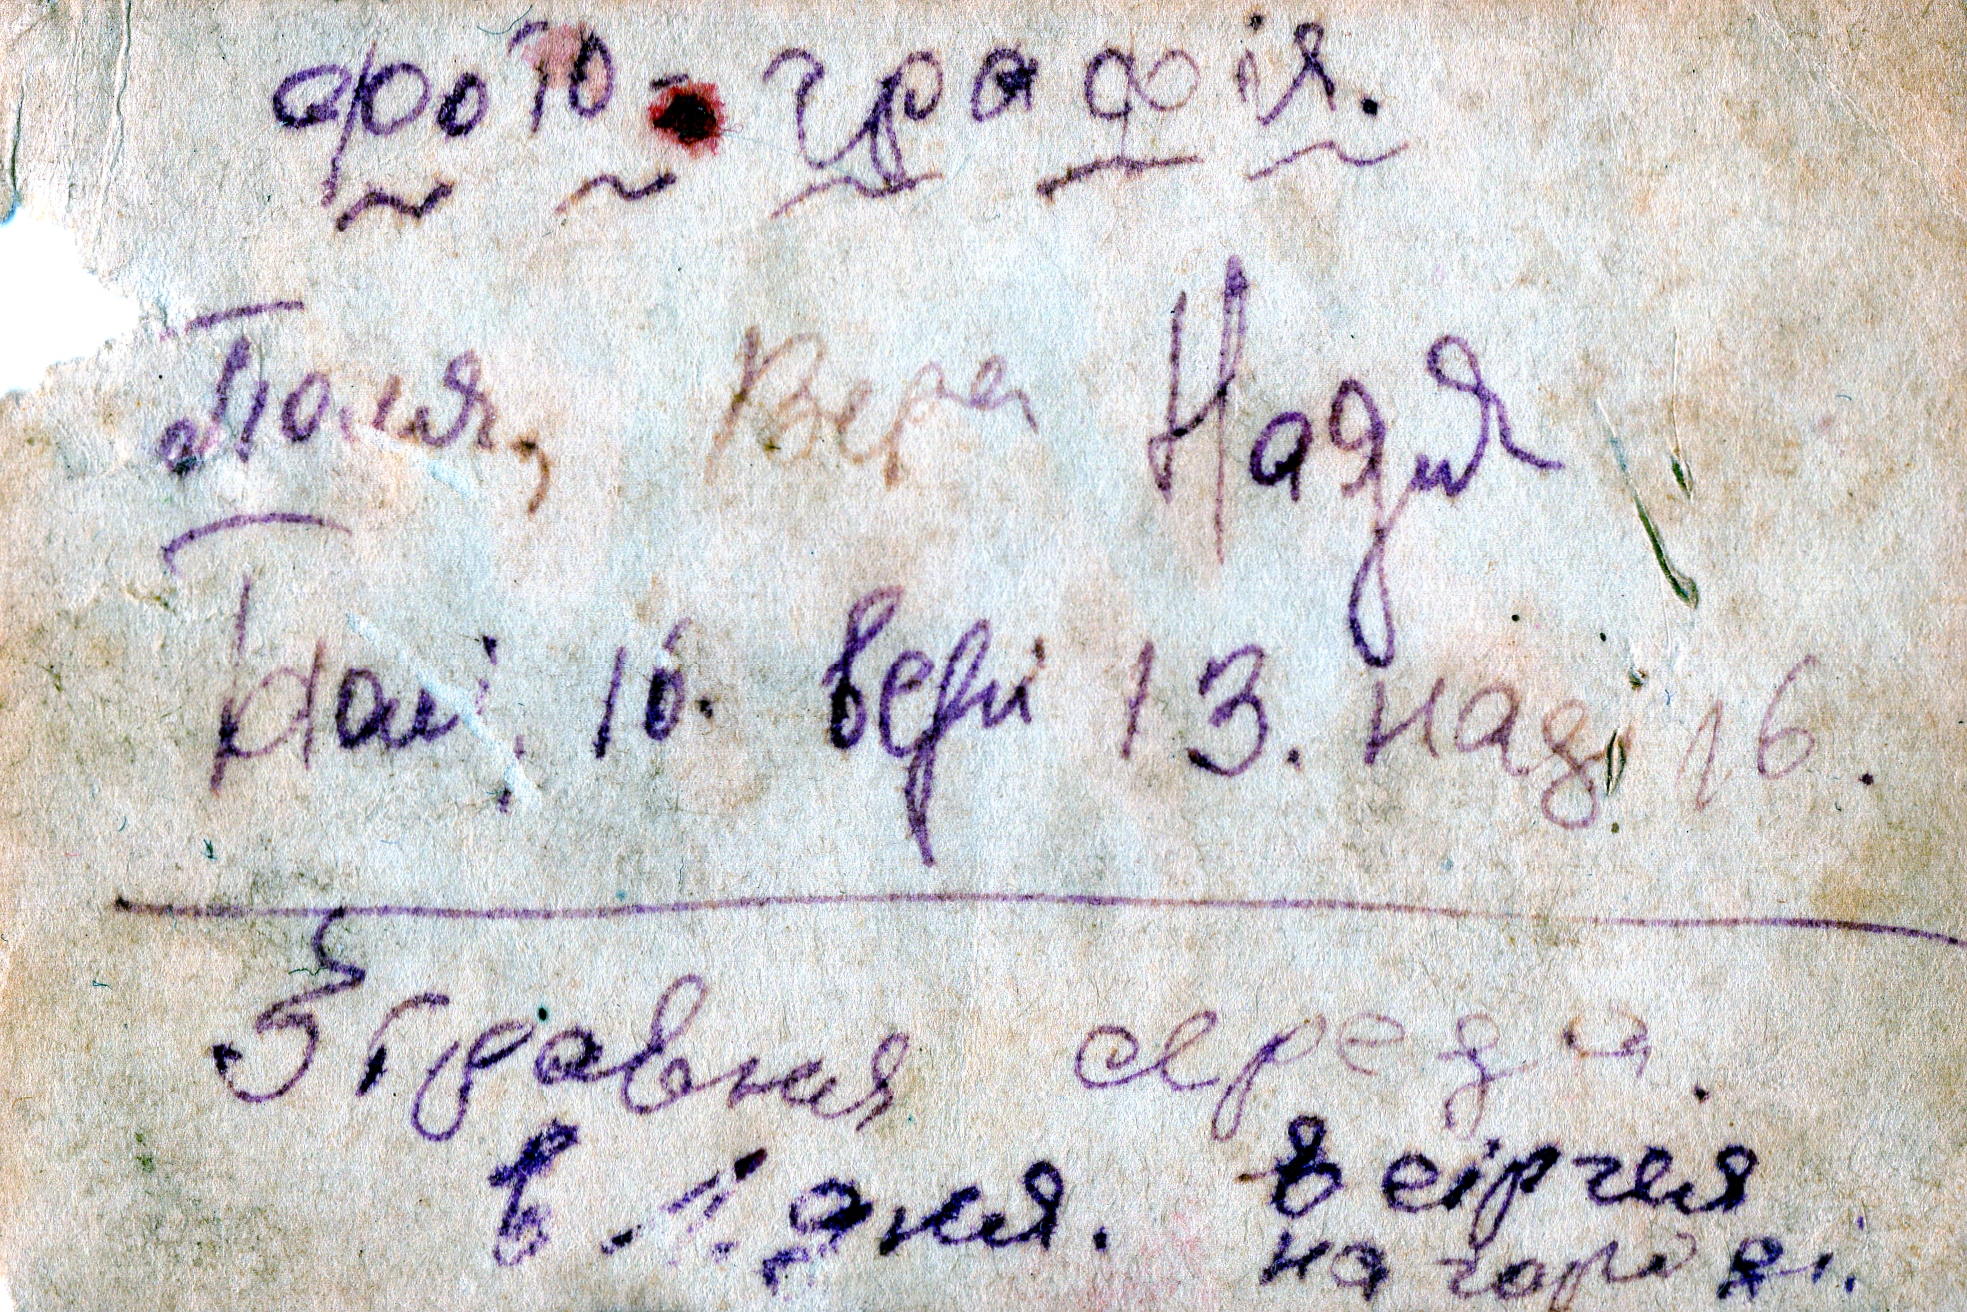 фото-графія.
Поля, Вера Надія
Полі 16. вері 13. наді 16.
5 травня середа.
в 1. дня. в сірчея
на городі.